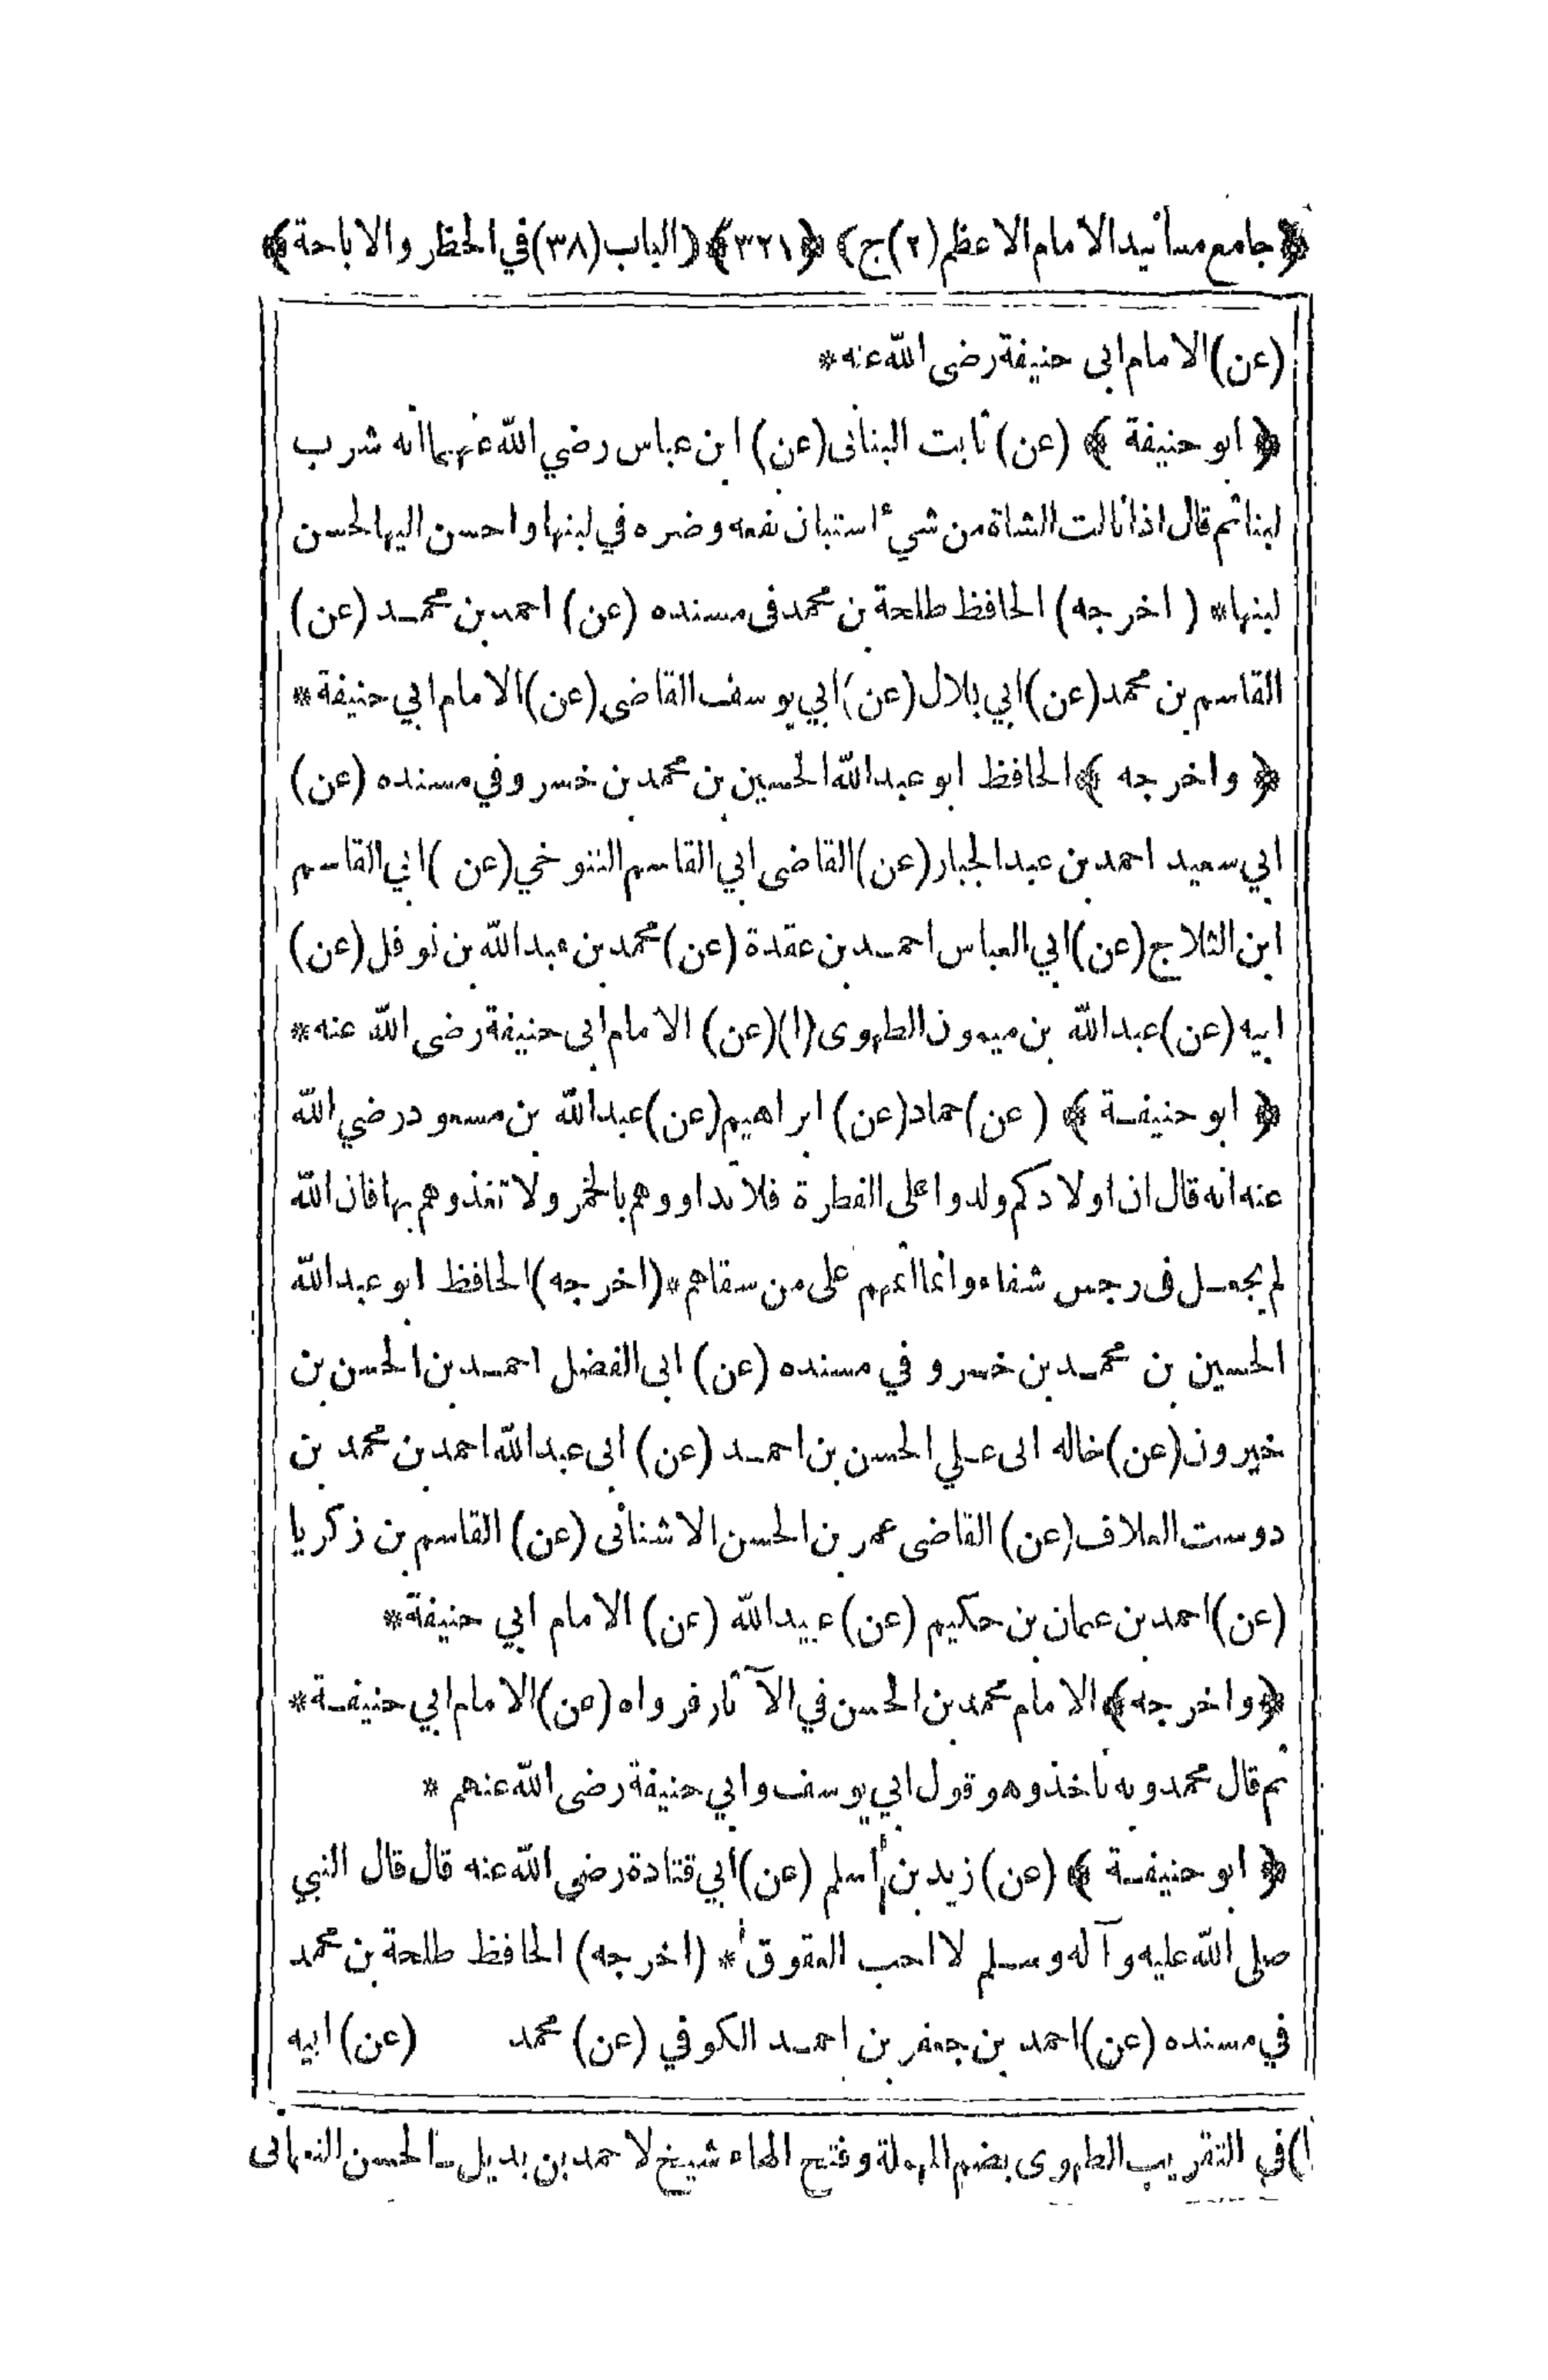 ﴿جامع مسانيد الامام الاعظم (٢) ج﴾ ﴿٣٢١﴾ ﴿الباب (٣٨) في الحظر والاباحة﴾
(عن) الامام ابى حنيفة رضى الله عنه *
﴿ ابو حنيفة ﴾ (عن) ثابت البنانى (عن) ابن عباس رضي الله عنهما انه شرب
لبنا ثم قال اذا نالت الشاة من شيء استبان نفعه وضره في لبنها واحسن اليها لحسن
لبنها * ( اخرجه) الحافظ طلحة بن محمد فى مسنده (عن) احمد بن محمد (عن)
القاسم بن محمد (عن) ابي بلال (عن) ابي يوسف القاضى (عن) الامام ابي حنيفة *
﴿ واخرجه ﴾ الحافظ ابو عبد الله الحسين بن محمد بن خسر وفي مسنده (عن)
ابي سعيد احمد بن عبد الجبار (عن) القاضى ابي القاسم التنوخي (عن ) ابي القاسم
ابن الثلاج (عن) ابي العباس احمد بن عقدة (عن) محمد بن عبد الله بن نوفل (عن)
ابيه (عن) عبد الله بن ميمون الطهوى (١) (عن) الامام ابى حنيفة رضى الله عنه *
﴿ ابو حنيفة ﴾ ( عن) حماد (عن) ابراهيم (عن) عبد الله بن مسعود رضي الله
عنه انه قال ان اولادكم ولدوا على الفطرة فلا تداووهم بالخمر ولا تغذوهم بها فان الله
لم يجعل فى رجس شفاء وانما اثمهم على من سقاهم * (اخرجه) الحافظ ابو عبد الله
الحسين بن محمد بن خسر و في مسنده (عن) ابى الفضل احمد بن الحسن بن
خيرون (عن) خاله ابى علي الحسن بن احمد (عن) ابى عبد الله احمد بن محمد بن
دوست العلاف (عن) القاضى عمر بن الحسن الاشنانى (عن) القاسم بن زكريا
(عن) احمد بن عثمان بن حكيم (عن) عبيد الله (عن) الامام ابي حنيفة *
﴿واخرجه﴾ الامام محمد بن الحسن في الآثار فرواه (عن) الامام ابي حنيفة *
ثم قال محمد وبه ناخذ وهو قول ابي يوسف وابي حنيفة رضى الله عنهم *
﴿ ابو حنيفة ﴾ (عن) زيد بن أسلم (عن) ابي قتادة رضي الله عنه قال قال النبي
صلى الله عليه وآله وسلم لا احب العقوق * (اخرجه) الحافظ طلحة بن محمد
في مسنده (عن) احمد بن جعفر بن احمد الكوفي (عن) محمد (عن) ابيه
١) في التقريب الطهوى بضم المهملة وفتح الهاء شيخ لاحمد بن بديل الحسن النعمانى